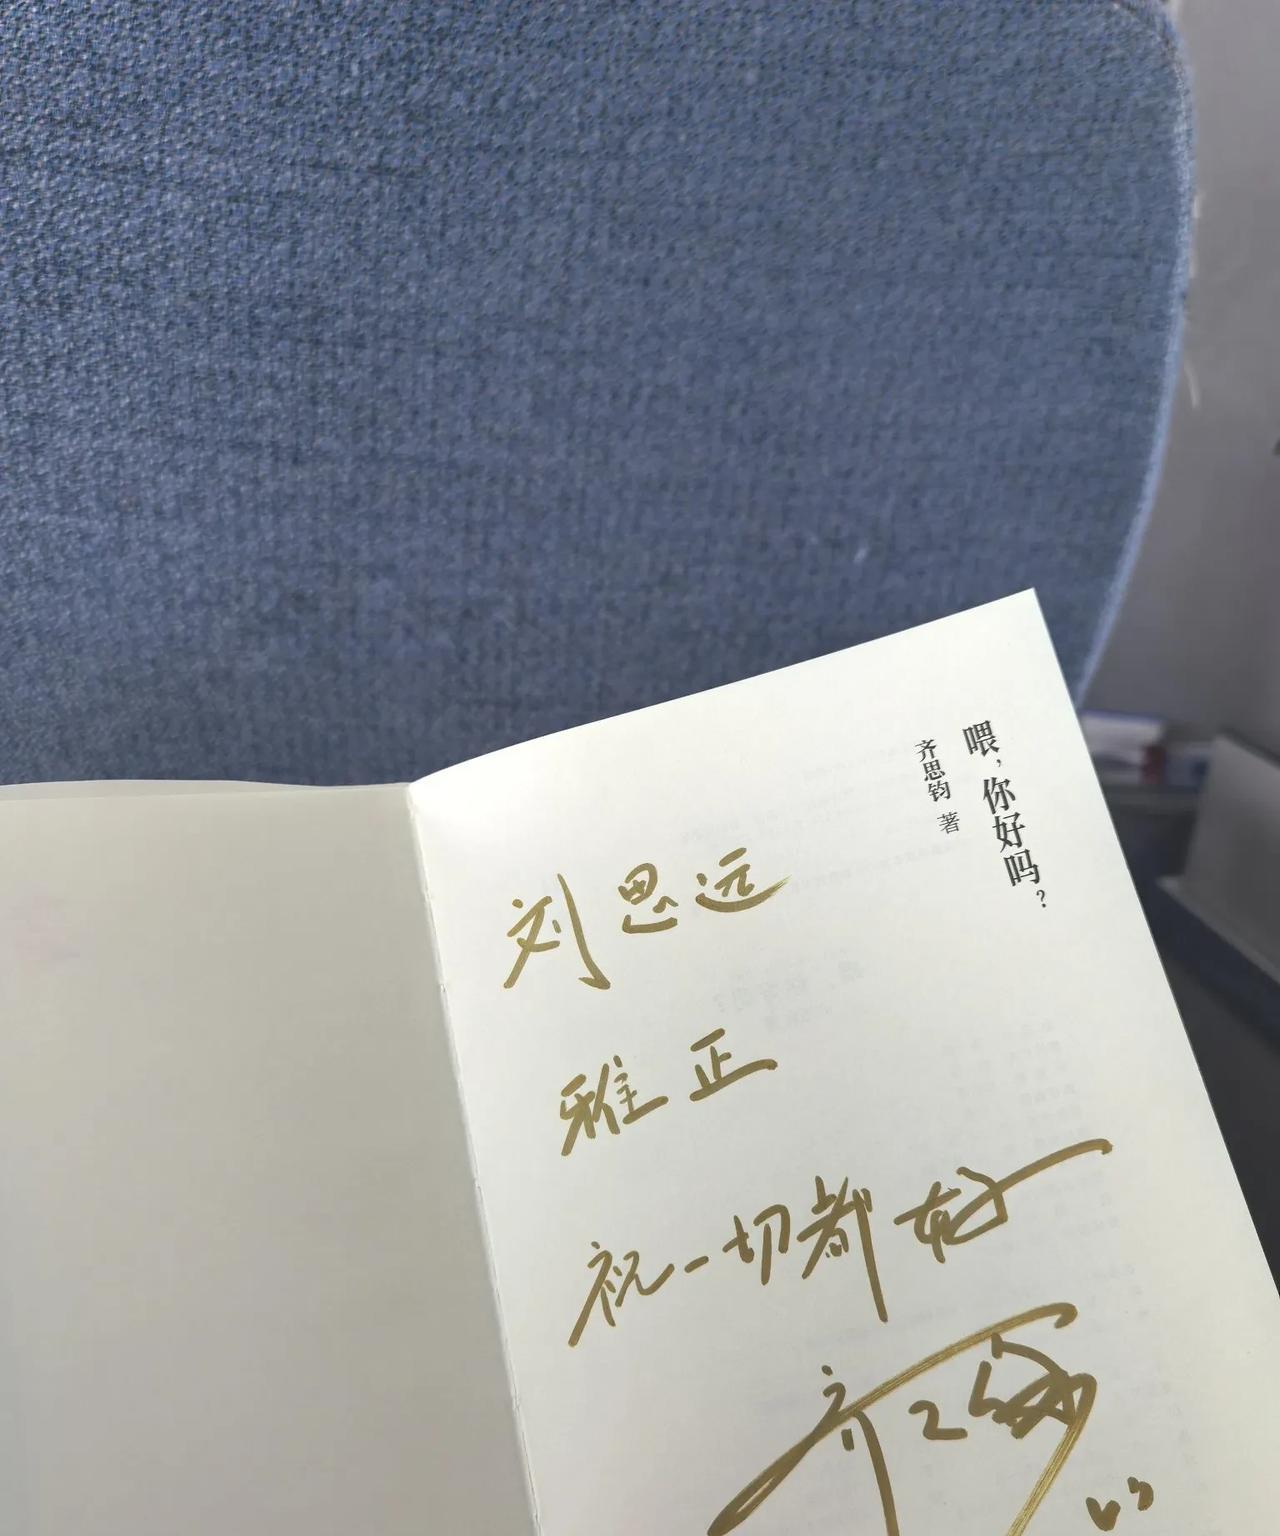 喂，你好吗？
齐思钧 著
刘思远
雅正
祝一切都好
齐思钧